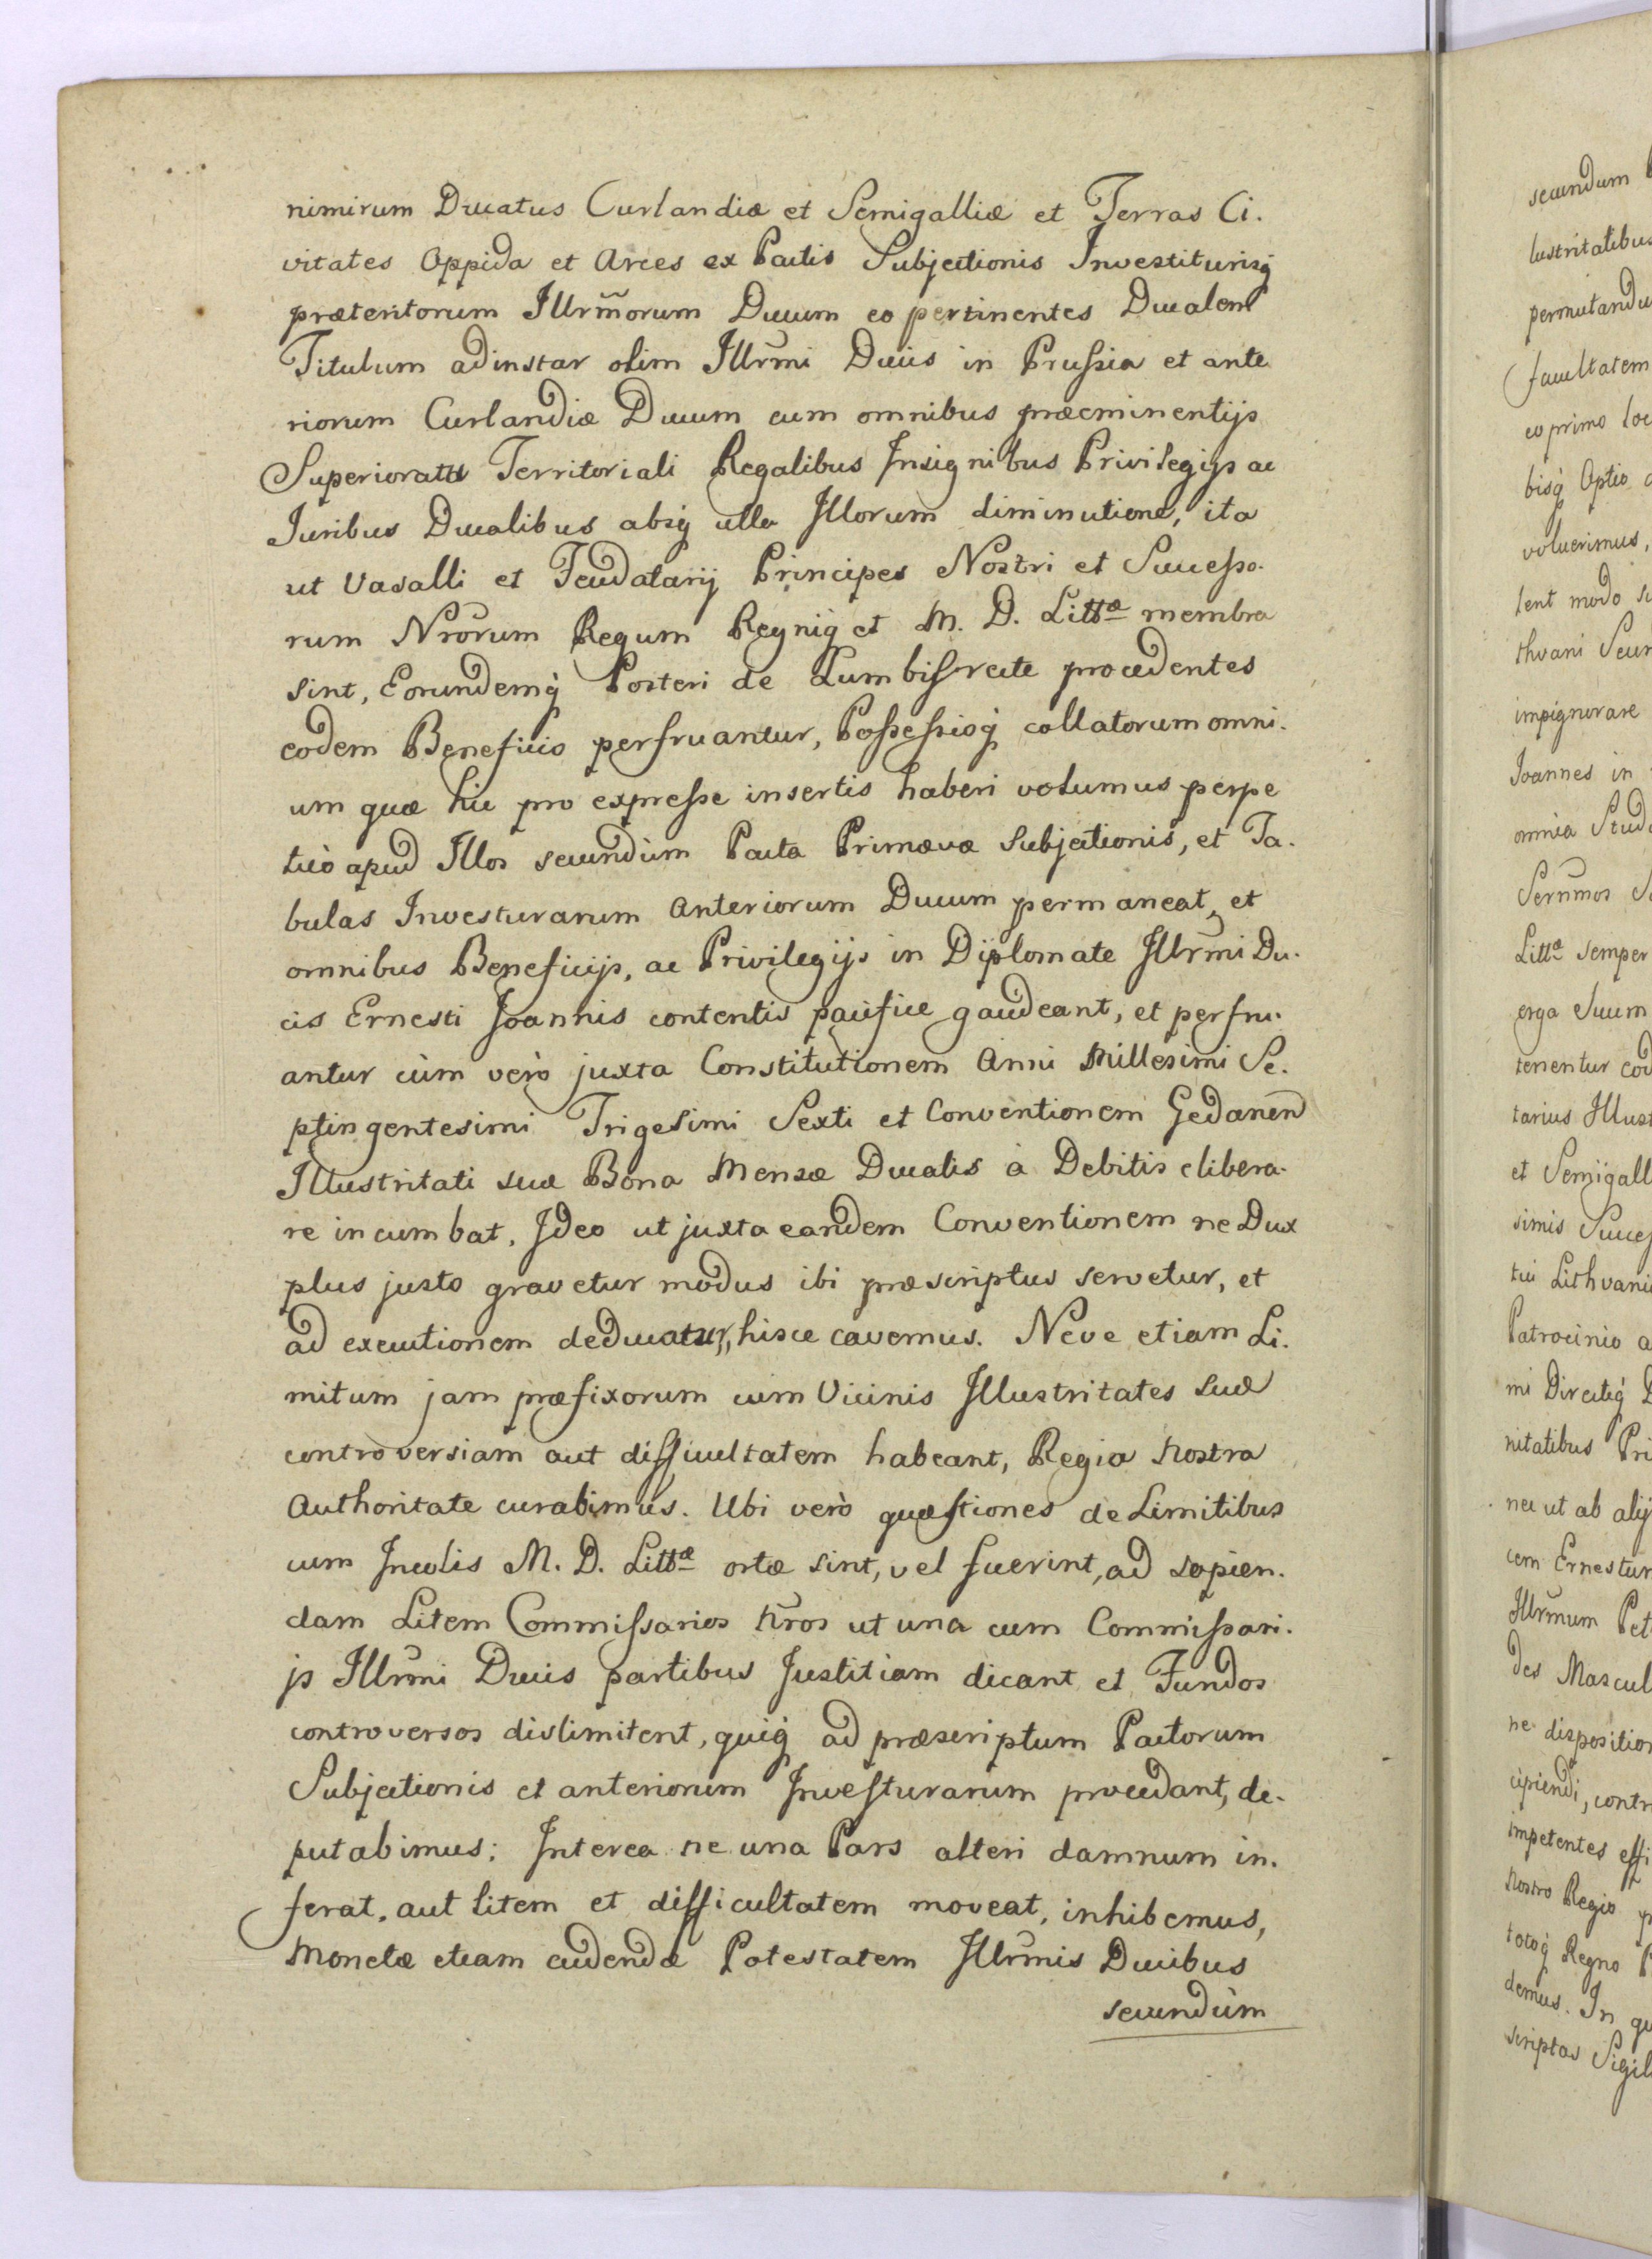 nimirum Ducatus Curlandiæ et Semigalliæ et Terras Ci.
vitates Oppida et Arces ex Pactis Subjectionis Investiturisq̀
præteritorum Illrm̃orum Ducum eo pertinentes Ducalem
Titulum adinstar olim Illrm̃i Ducis in Prussia et ante
riorum Curlandiæ Ducum cum omnibus præeminentijs
Superioratu Territoriali Regalibus Insignibus Privilegijs ac
Juribus Ducalibus absq̀ ulla Illorum diminutione, ita
ut Vasalli et Feudatarij Principes Nostri et Successo.
rum Nrõrum Regum Regniq̀ et M. D. Littæ membra
sint, Eorundemq̀ Posteri de Lumbis recte procedentes
eodem Beneficio perfruantur, Possessioq̀ collatorum omni.
um quæ hic pro expresse insertis haberi volumus perpe
tuò apud Illos secundùm Pacta Primævæ Subjectionis, et Ta.
bulas Investurarum Anteriorum Ducum permaneat, et
omnibus Beneficijs, ac Privilegijs in Diplomate Illrm̃i Du.
cis Ernesti Joannis contentis pacifice gaudeant, et perfru.
antur cùm verò juxta Constitutionem Anni Millesimi Se.
ptingentesimi Trigesimi Sexti et Conventionem Gedanen̄
Illustritati suæ Bona Mensæ Ducalis à Debitis elibera.
re incumbat. Ideo ut juxta eandem Conventionem ne Dux
plus justo gravetur modus ibi præscriptus servetur, et
ad executionem deducatur, hisce cavemus. Neve etiam Li.
mitum jam præfixorum cum Vicinis Illustritates suæ
controversiam aut difficultatem habeant, Regia Nostra
Authoritate curabimus. Ubi verò quæstiones de Limitibus
cum Incolis M. D. Littæ ortæ sint, vel fuerint, ad sopien.
dam Litem Commissarios Nr̃os ut una cum Commissari.
js Illrm̃i Ducis partibus Justitiam dicant et Fundos
controversos dislimitent, quiq̀ ad præscriptum Pactorum
Subjectionis et anteriorum Investurarum procedant, de.
putabimus; Interea ne una Pars alteri damnum in.
ferat, aut litem et difficultatem moveat, inhibemus,
Monetæ etiam cudendæ Potestatem Illrm̃is Ducibus
secundùm
secundum
lustritatibus
facultatem
eo primo
bisq̀ Optio
voluerimus,
lent modo
thvani
impignorare
Joannes in
omnia
Sernm̃os
Littæ semper
erga suum
tenentur
tarius
et
simis
tui
Patrocinio
mi Directiq̀
nitatibus
nec ut ab
cem
Illrm̃um
des
ne
cipiendi,
impetentes
Nostro Regio
totoq̀ Regno
demus. In
scriptas